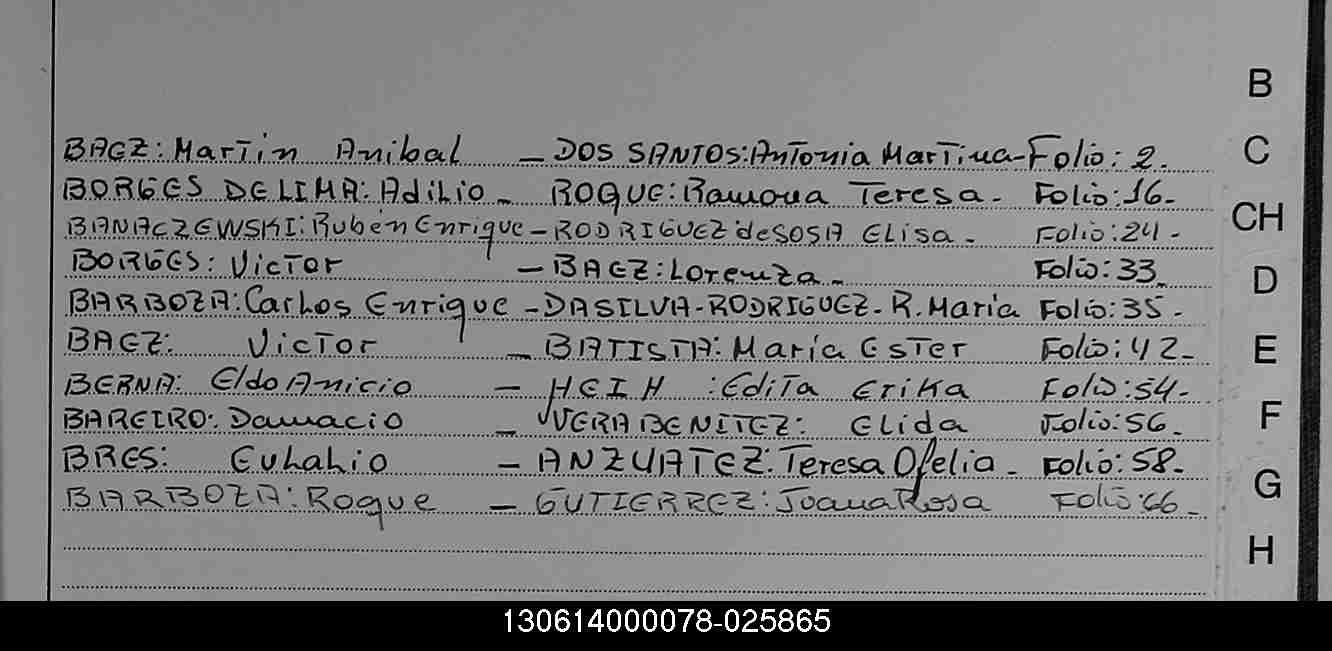 B
BAEZ: Martin Anibal - DOS SANTOS: Antonia Martina - Folio: 2.
C
BORGES DE LIMA: Adilio - ROQUE: Ramona Teresa - Folio: 16-
CH
BANACZEWSKI: Rubén Enrique - RODRIGUEZ de SOSA Elisa - Folio: 24-
BORGES: Victor - BAEZ: Lorenza - Folio: 33-
D
BARBOZA: Carlos Enrique - DASILVA-RODRIGUEZ-R. Maria Folio: 35-
BAEZ: Victor - BATISTA: María Ester Folio: 42-
E
BERNA: Eldo Anicio - HEIH : Edita Erika Folio: 54-
BAREIRO: Damacio - VERA BENITEZ: Elida Folio: 56-
F
BRES: Eulalio - ANZUATEZ: Teresa Ofelia - Folio: 58-
G
BARBOZA: Roque - GUTIERREZ: Juana Rosa Folio: 66-
H
130614000078-025865